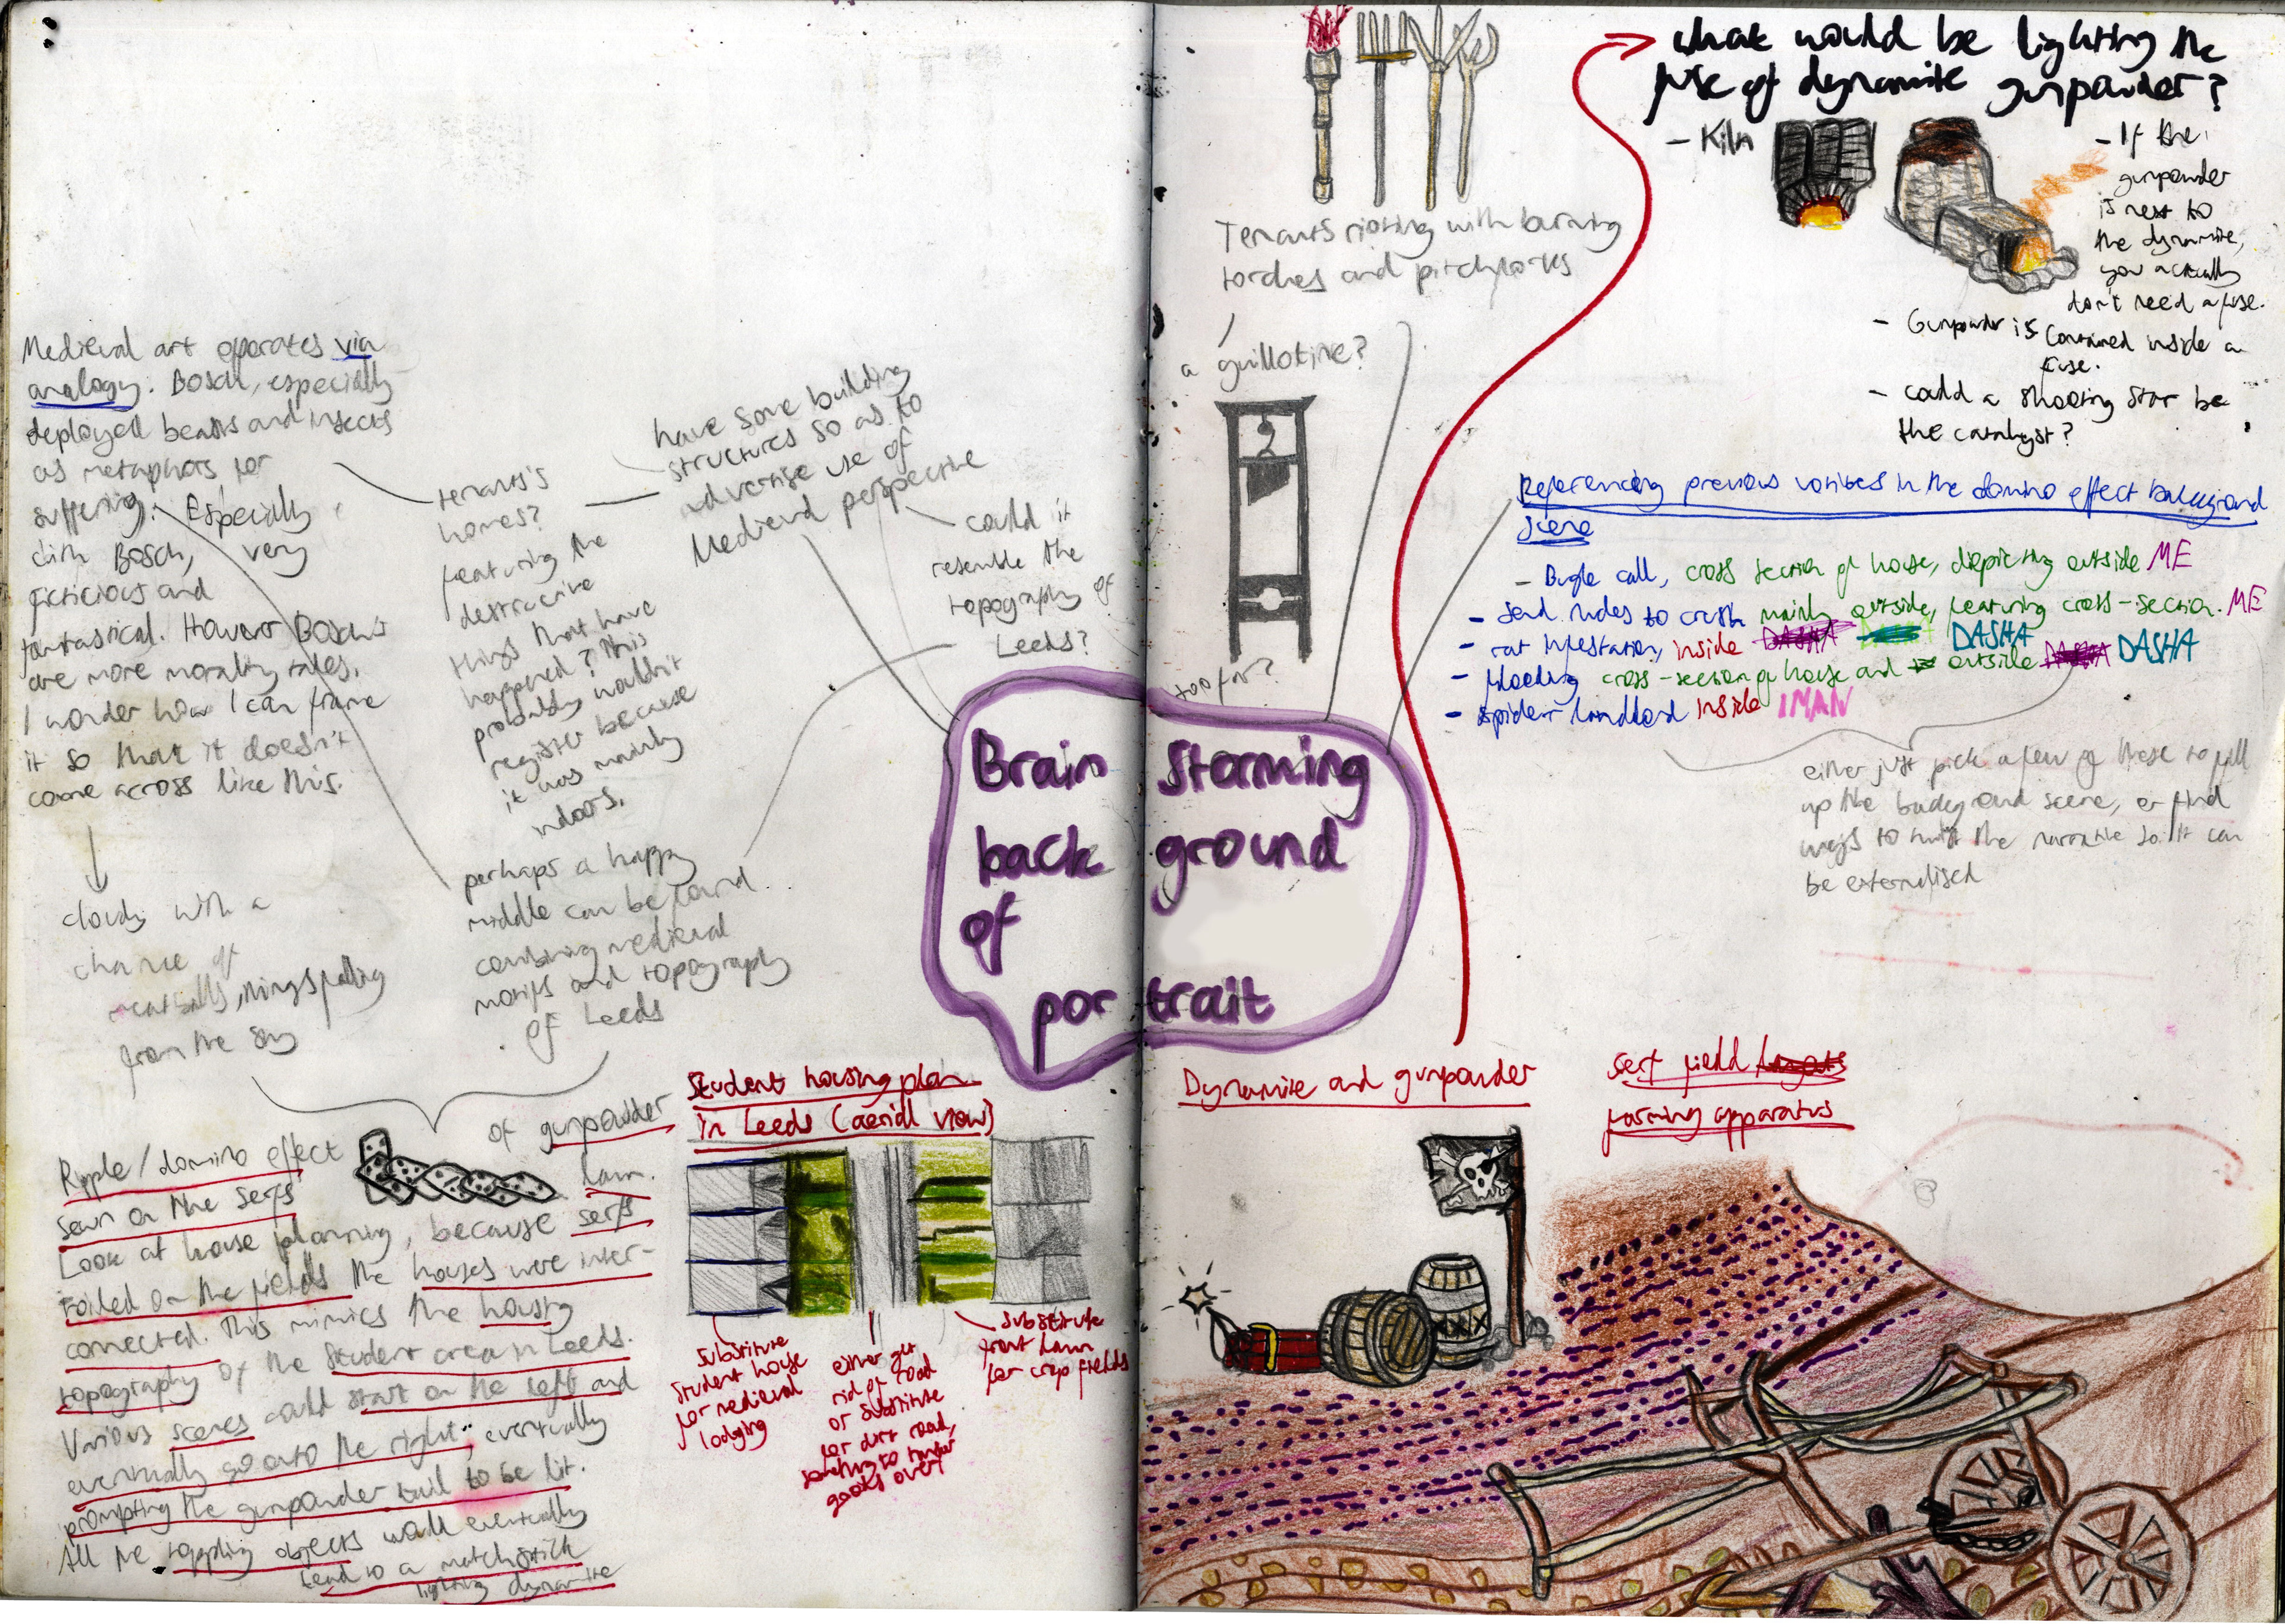 Medieval art operates via
analogy. Bosch, especially
deployed beasts and insects
as metaphors for
suffering. Especially
with Bosch, very
ficticious and
fantastical. However Bosch's
are more morality tales.
I wonder how I can frame
it so that it doesn't
come across like this.
cloudy with a
chance of
meatballs, things falling
from the sky
tenants's
homes?
featuring the
destructive
things that have
happened? This
probably wouldn't
register because
it was mainly
indoors.
have some building
structures so as to
advertise use of
Medieval perspective
could it
resemble the
topography of
Leeds?
perhaps a happy
middle can be found
combining medieval
motifs and topography
of Leeds
Brain Storming
back ground
of
portrait
Ripple/domino effect of gunpowder
seen on the serfs lawn.
Look at house planning, because serfs
toiled on the fields the houses were inter-
connected. This mimics the housing
topography of the student area in Leeds.
Various scenes could start on the left and
eventually go onto the right.. eventually
prompting the gunpowder trail to be lit.
All the toppling objects would eventually
lead to a matchstick
lighting dynamite
Student housing plan
in Leeds (aerial view)
substitute
student house
for medieval
lodging
either get
rid of road
or substitute
for dirt road,
something to transfer
goods over
substitute
front lawn
for crop fields
Tenants rioting with burning
torches and pitchforks
a guillotine?
too far?
what would be lighting the
fuse of dynamite gunpowder?
- Kiln
- If the
gunpowder
is next to
the dynamite,
you actually
don't need a fuse.
- Gunpowder is contained inside a
fuse.
- could a shooting star be
the catalyst?
Referencing previous vortices in the domino effect background
scene
- Bugle call, cross section of house, depicting outside ME
- send nudes to crush mainly outside, featuring cross-section. ME
- rat infestation, inside DASHA DASHA
- flooding cross-section of house and outside DASHA DASHA
- spider landlord inside IMAN
either just pick a few of these to fill
up the background scene, or find
ways to twist the narrative so it can
be externalised
Dynamite and gunpowder
serf field
farming apparatus